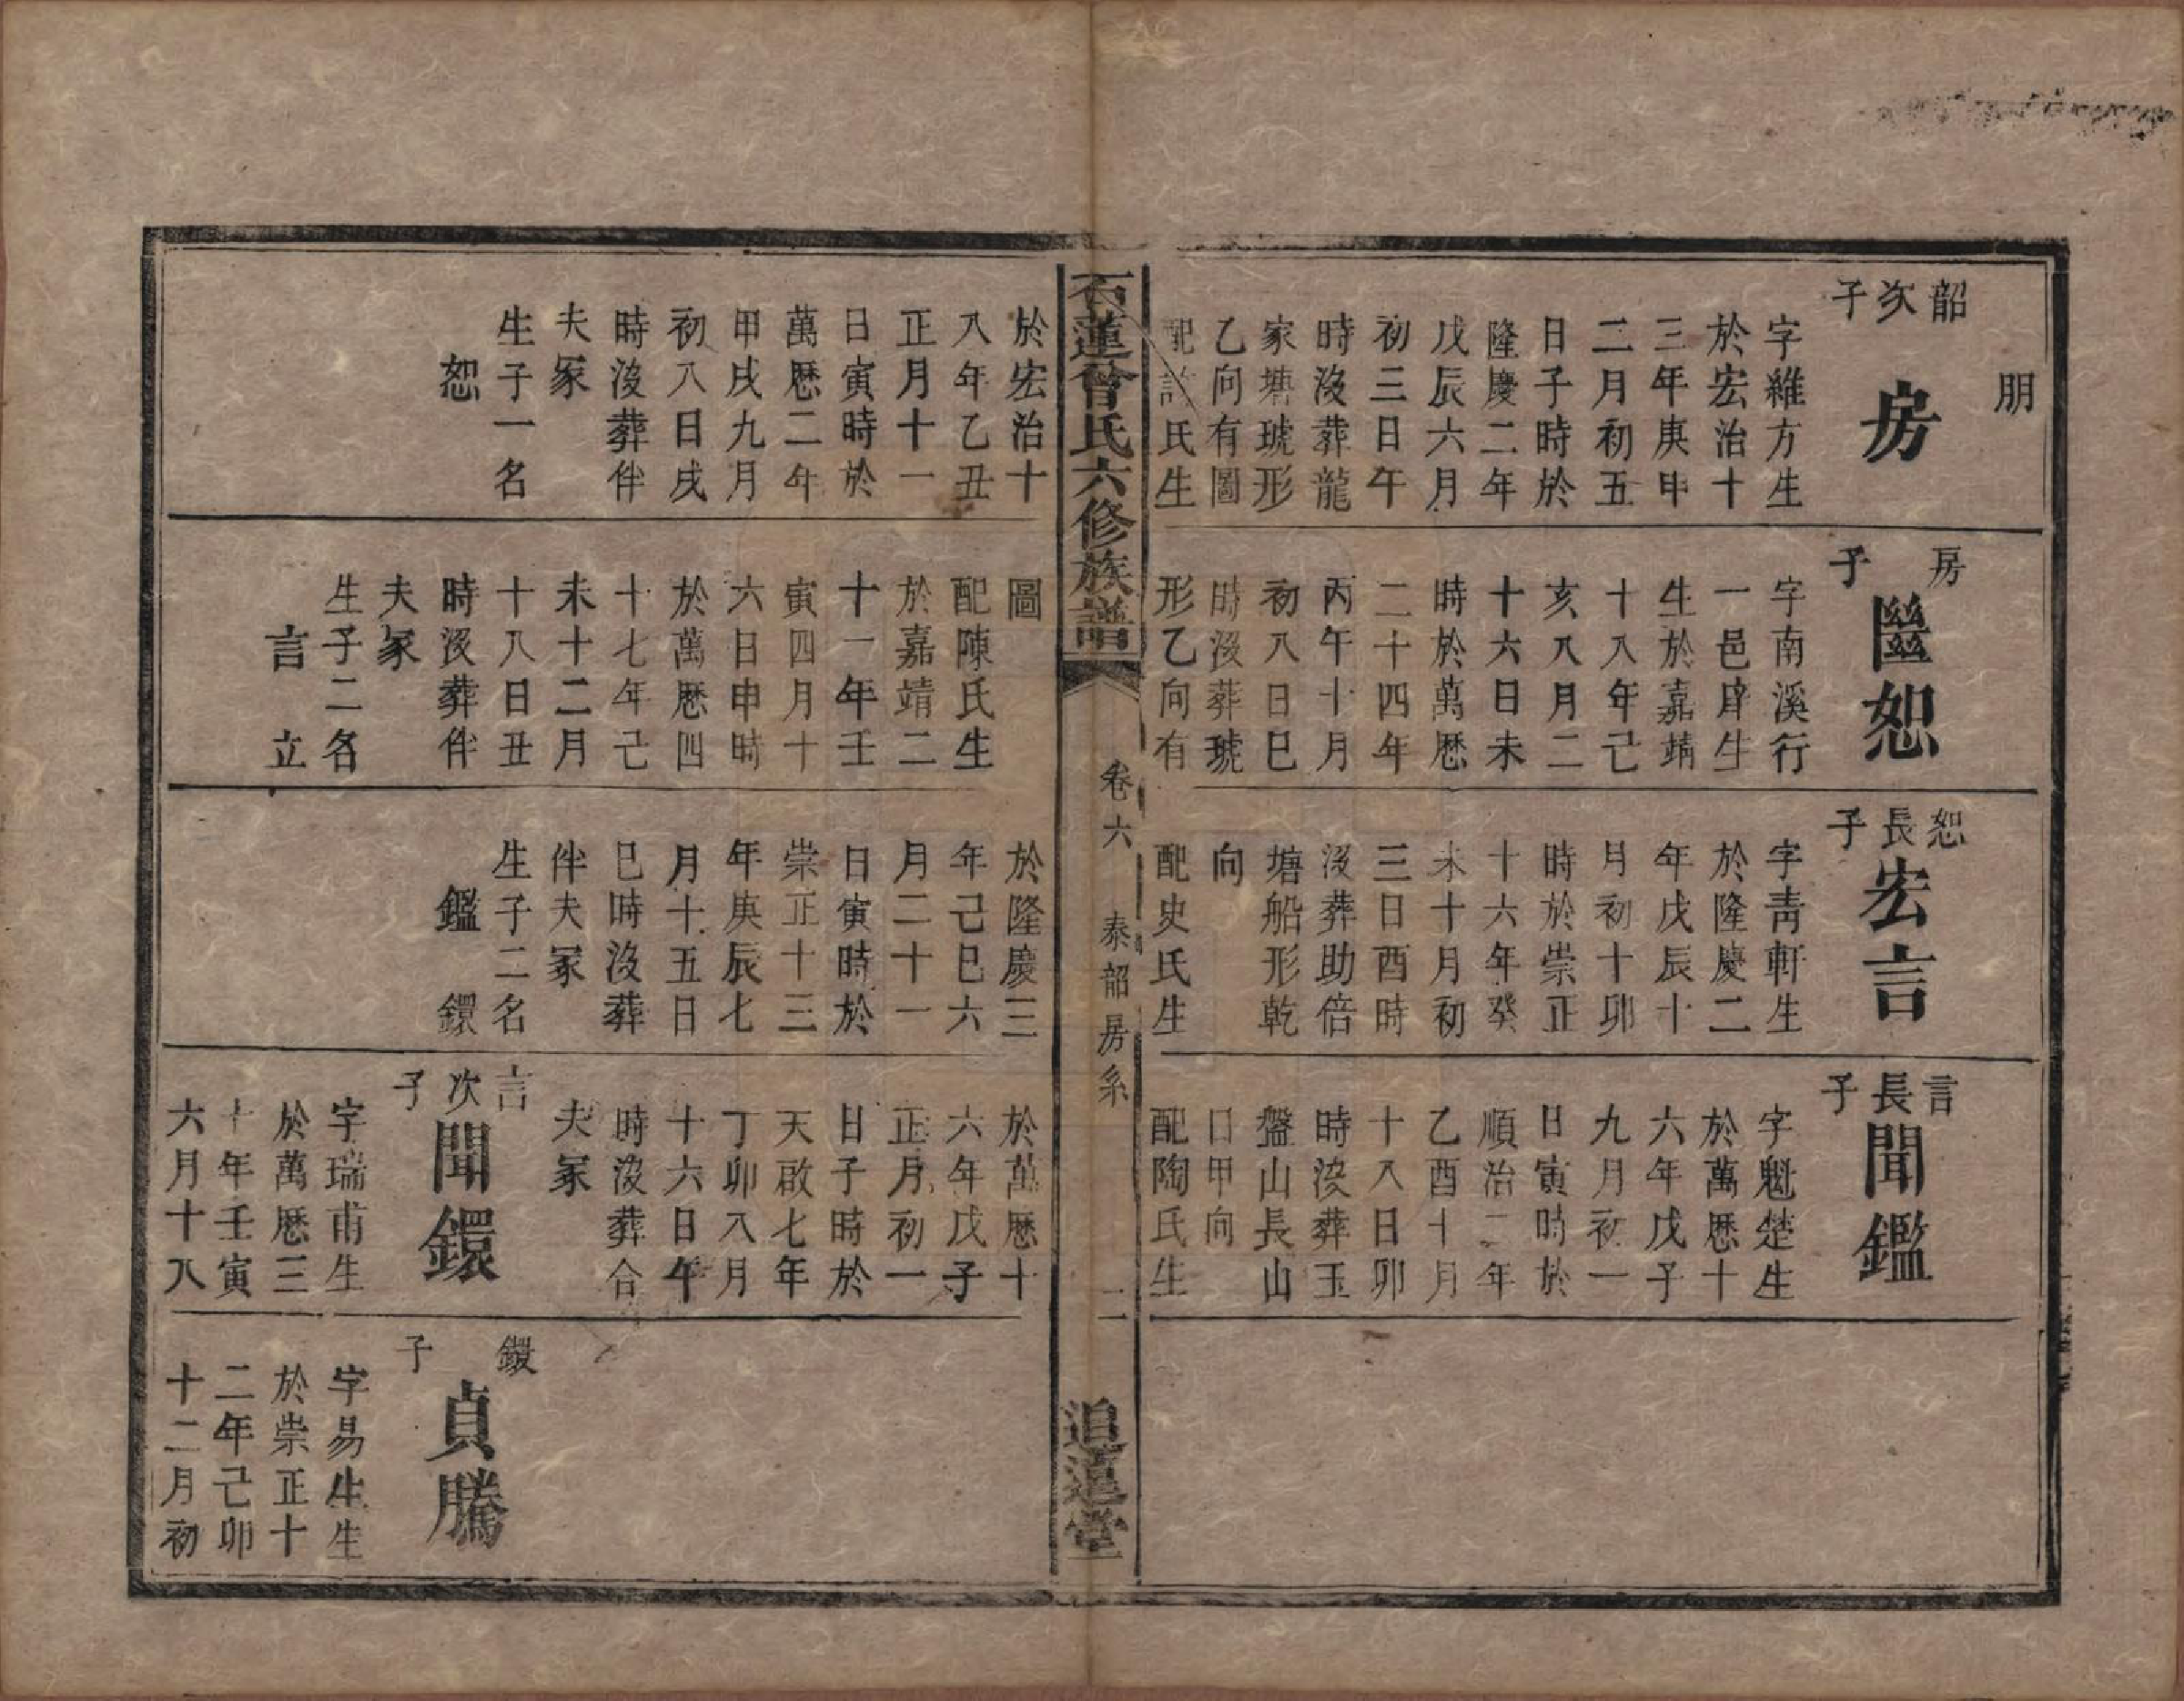 朋
韶次子
房
字維方生
於宏治十
三年庚申
二月初五
日子時於
隆慶二年
戊辰六月
初三日午
時沒葬龍
家塘琥形
乙向有圖
配許氏生
房子
恕
字南溪行
一邑庠生
生於嘉靖
十八年己
亥八月二
十六日未
時於萬歷
二十四年
丙午十月
初八日巳
時沒葬琥
形乙向有
恕長子
宏言
字靑軒生
於隆慶二
年戊辰十
月初十卯
時於崇正
十六年癸
未十月初
三日酉時
沒葬助倍
塘船形乾
向
配史氏生
言長子
聞鑑
字魁楚生
於萬歷十
六年戊子
九月初一
日寅時於
順治二年
乙酉十月
十八日卯
時沒葬玉
盤山長山
口甲向
配陶氏生
石蓮曾氏六修族譜
卷六
泰韶房系
二
追遠堂
於宏治十
八年乙丑
正月十一
日寅時於
萬歷二年
甲戌九月
初八日戌
時沒葬伴
夫冢
生子一名
恕
圖
配陳氏生
於嘉靖二
十一年壬
寅四月十
六日申時
於萬歷四
十七年己
未十二月
十八日丑
時沒葬伴
夫冢
生子二名
言 立
於隆慶三
年己巳六
月二十一
日寅時於
崇正十三
年庚辰七
月十五日
巳時沒葬
伴夫冢
生子二名
鑑 鐶
於萬歷十
六年戊子
正月初一
日子時於
天啟七年
丁卯八月
十六日午
時沒葬合
夫冢
言次子
聞鐶
字瑞甫生
於萬歷三
十年壬寅
六月十八
鐶子
貞騰
字易生生
於崇正十
二年己卯
十二月初